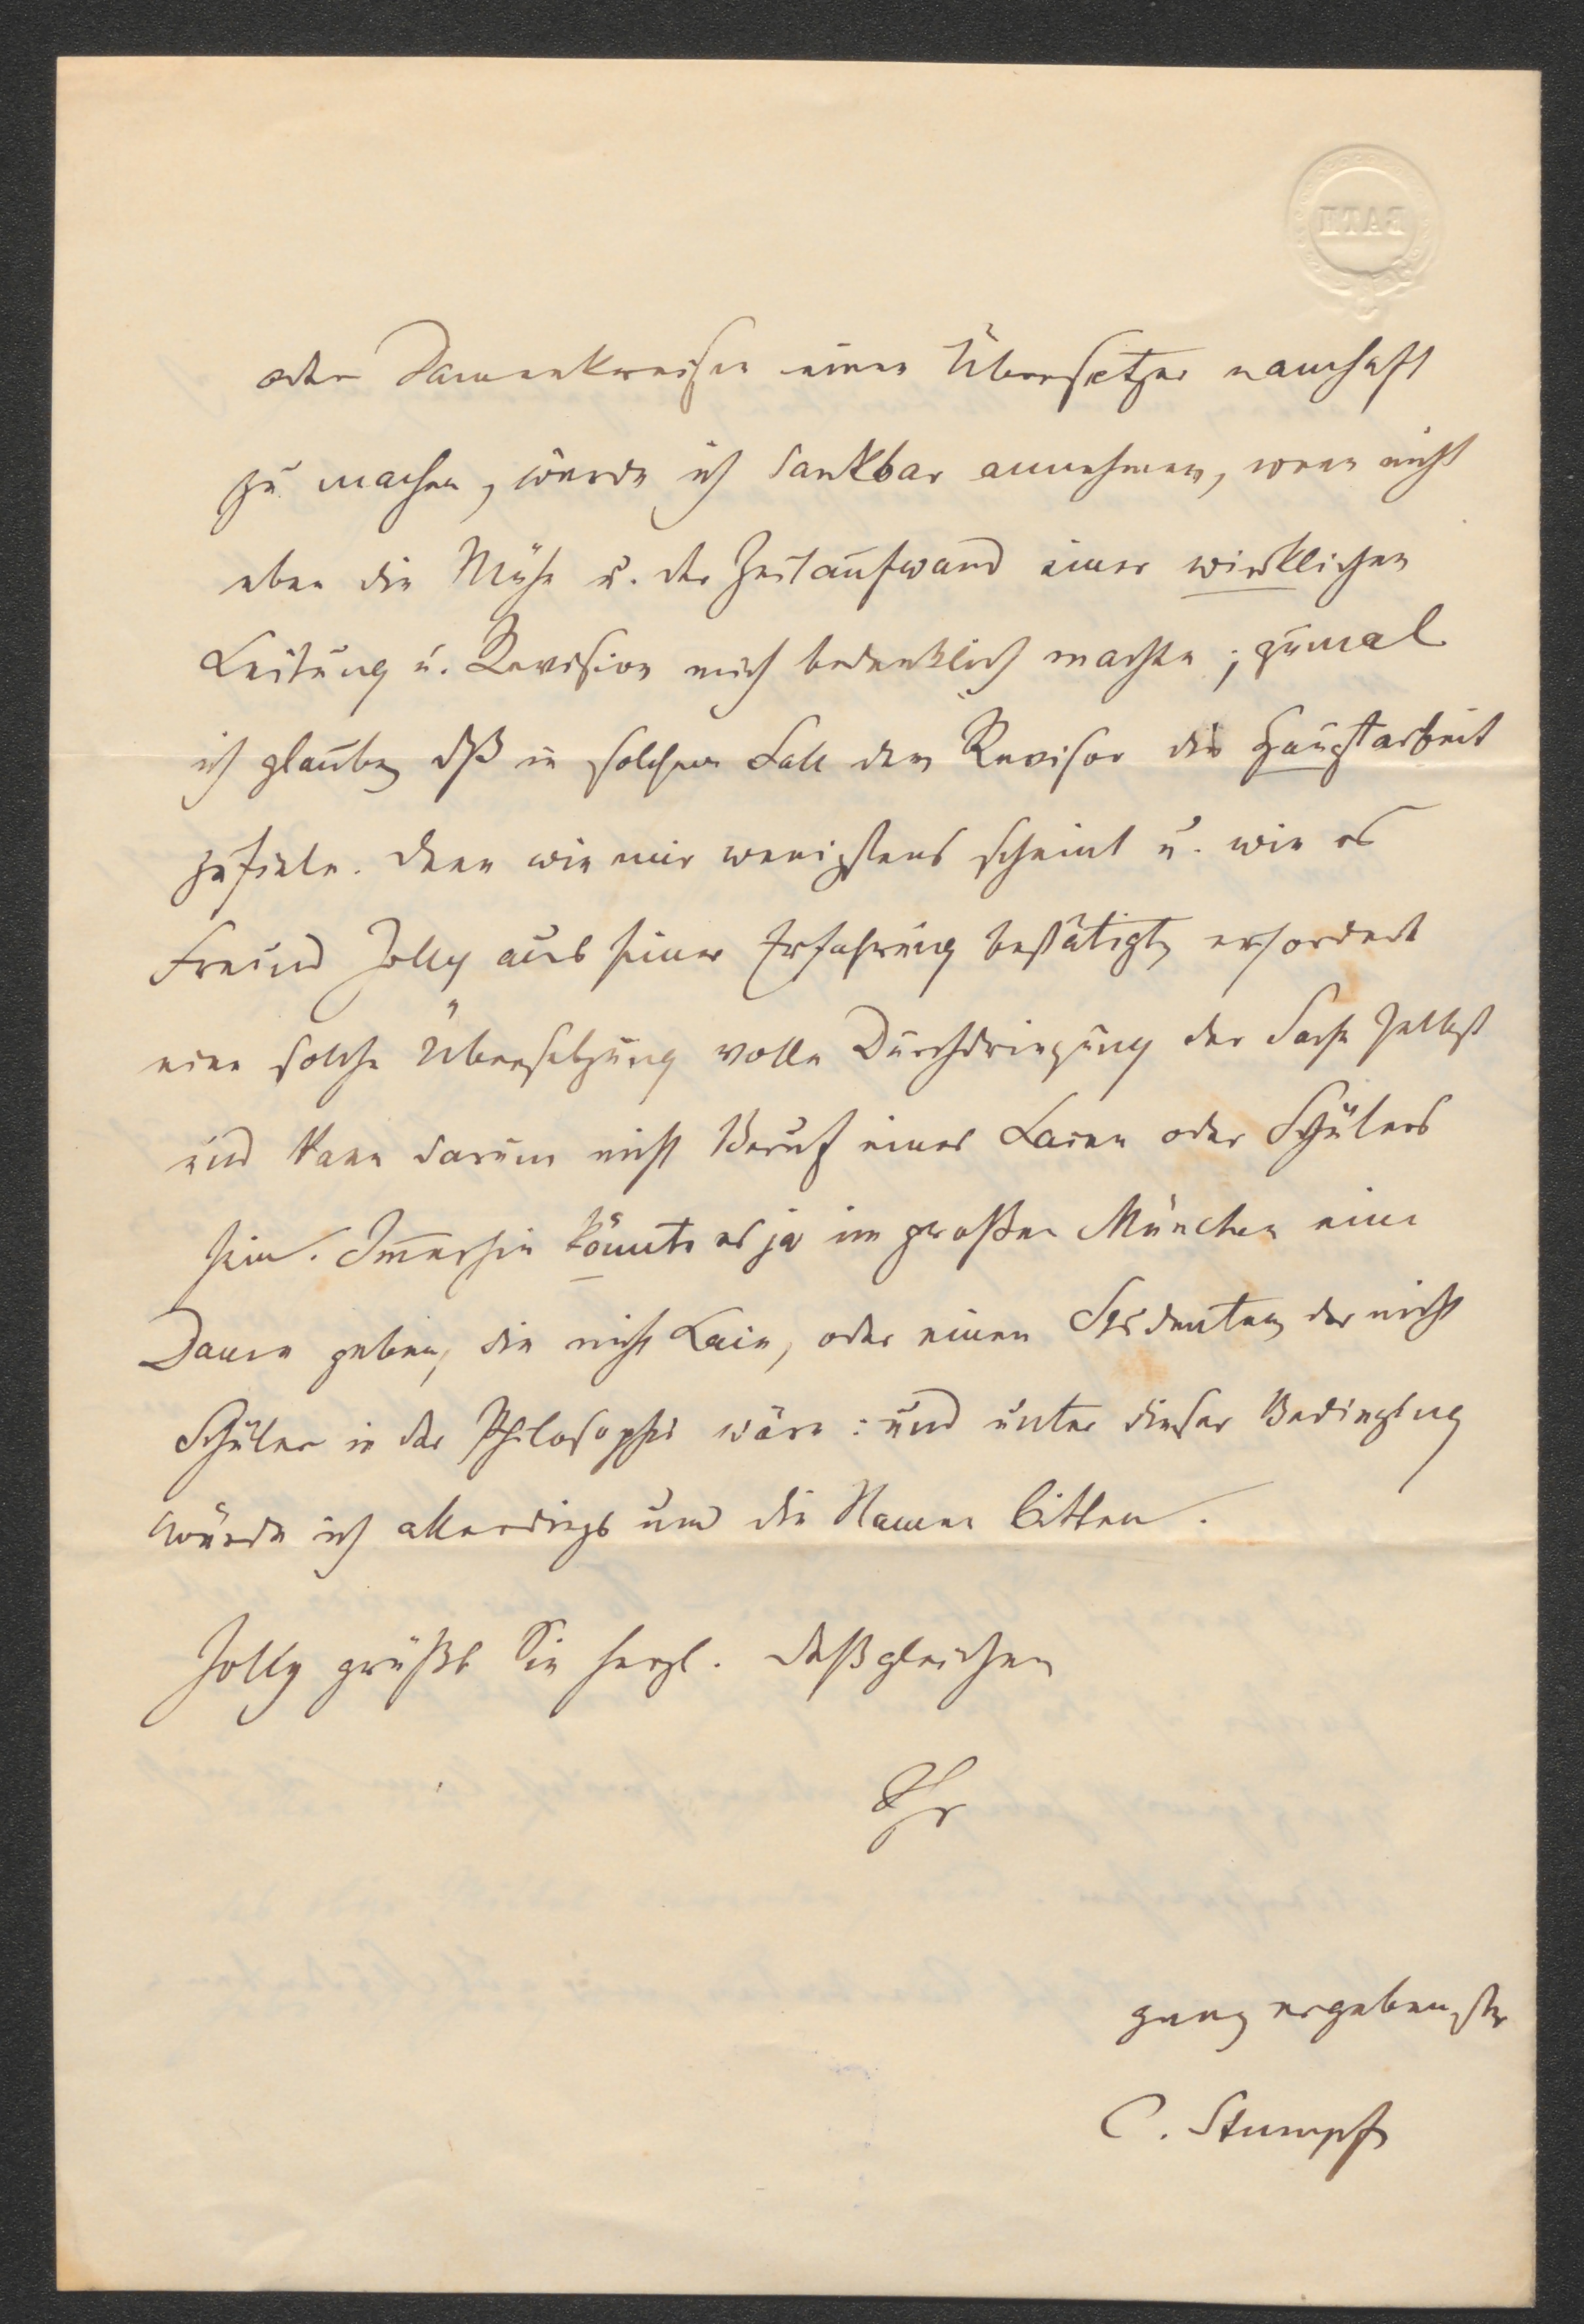 BATH
oder Damenkreisen einen Übersetzer namhaft
zu machen, würde ich dankbar annehmen, wenn nicht
eben die Mühe u. der Zeitaufwand einer wirklichen
Leitung u. Revision mich bedenklich machte; zumal
ich glaube, dß in solchem Fall dem Revisor die Hauptarbeit
zufiele. Denn wie mir wenigstens scheint u. wie es
Freund Jolly aus seiner Erfahrung bestätigt, erfordert
eine solche Übersetzung volle Durchdringung der Sache selbst
und kann darum nicht Beruf eines Laien oder Schülers
sein. Im̄erhin könnte es ja im großen München eine
Dame geben, die nicht Laie, oder einen Studenten, der nicht
Schüler in der Philosophie wäre: und unter dieser Bedingung
würde ich allerdings um die Namen bitten.
Jolly grüßt Sie herzl. Deßgleichen
Ihr
ganz ergebenster
C. Stumpf